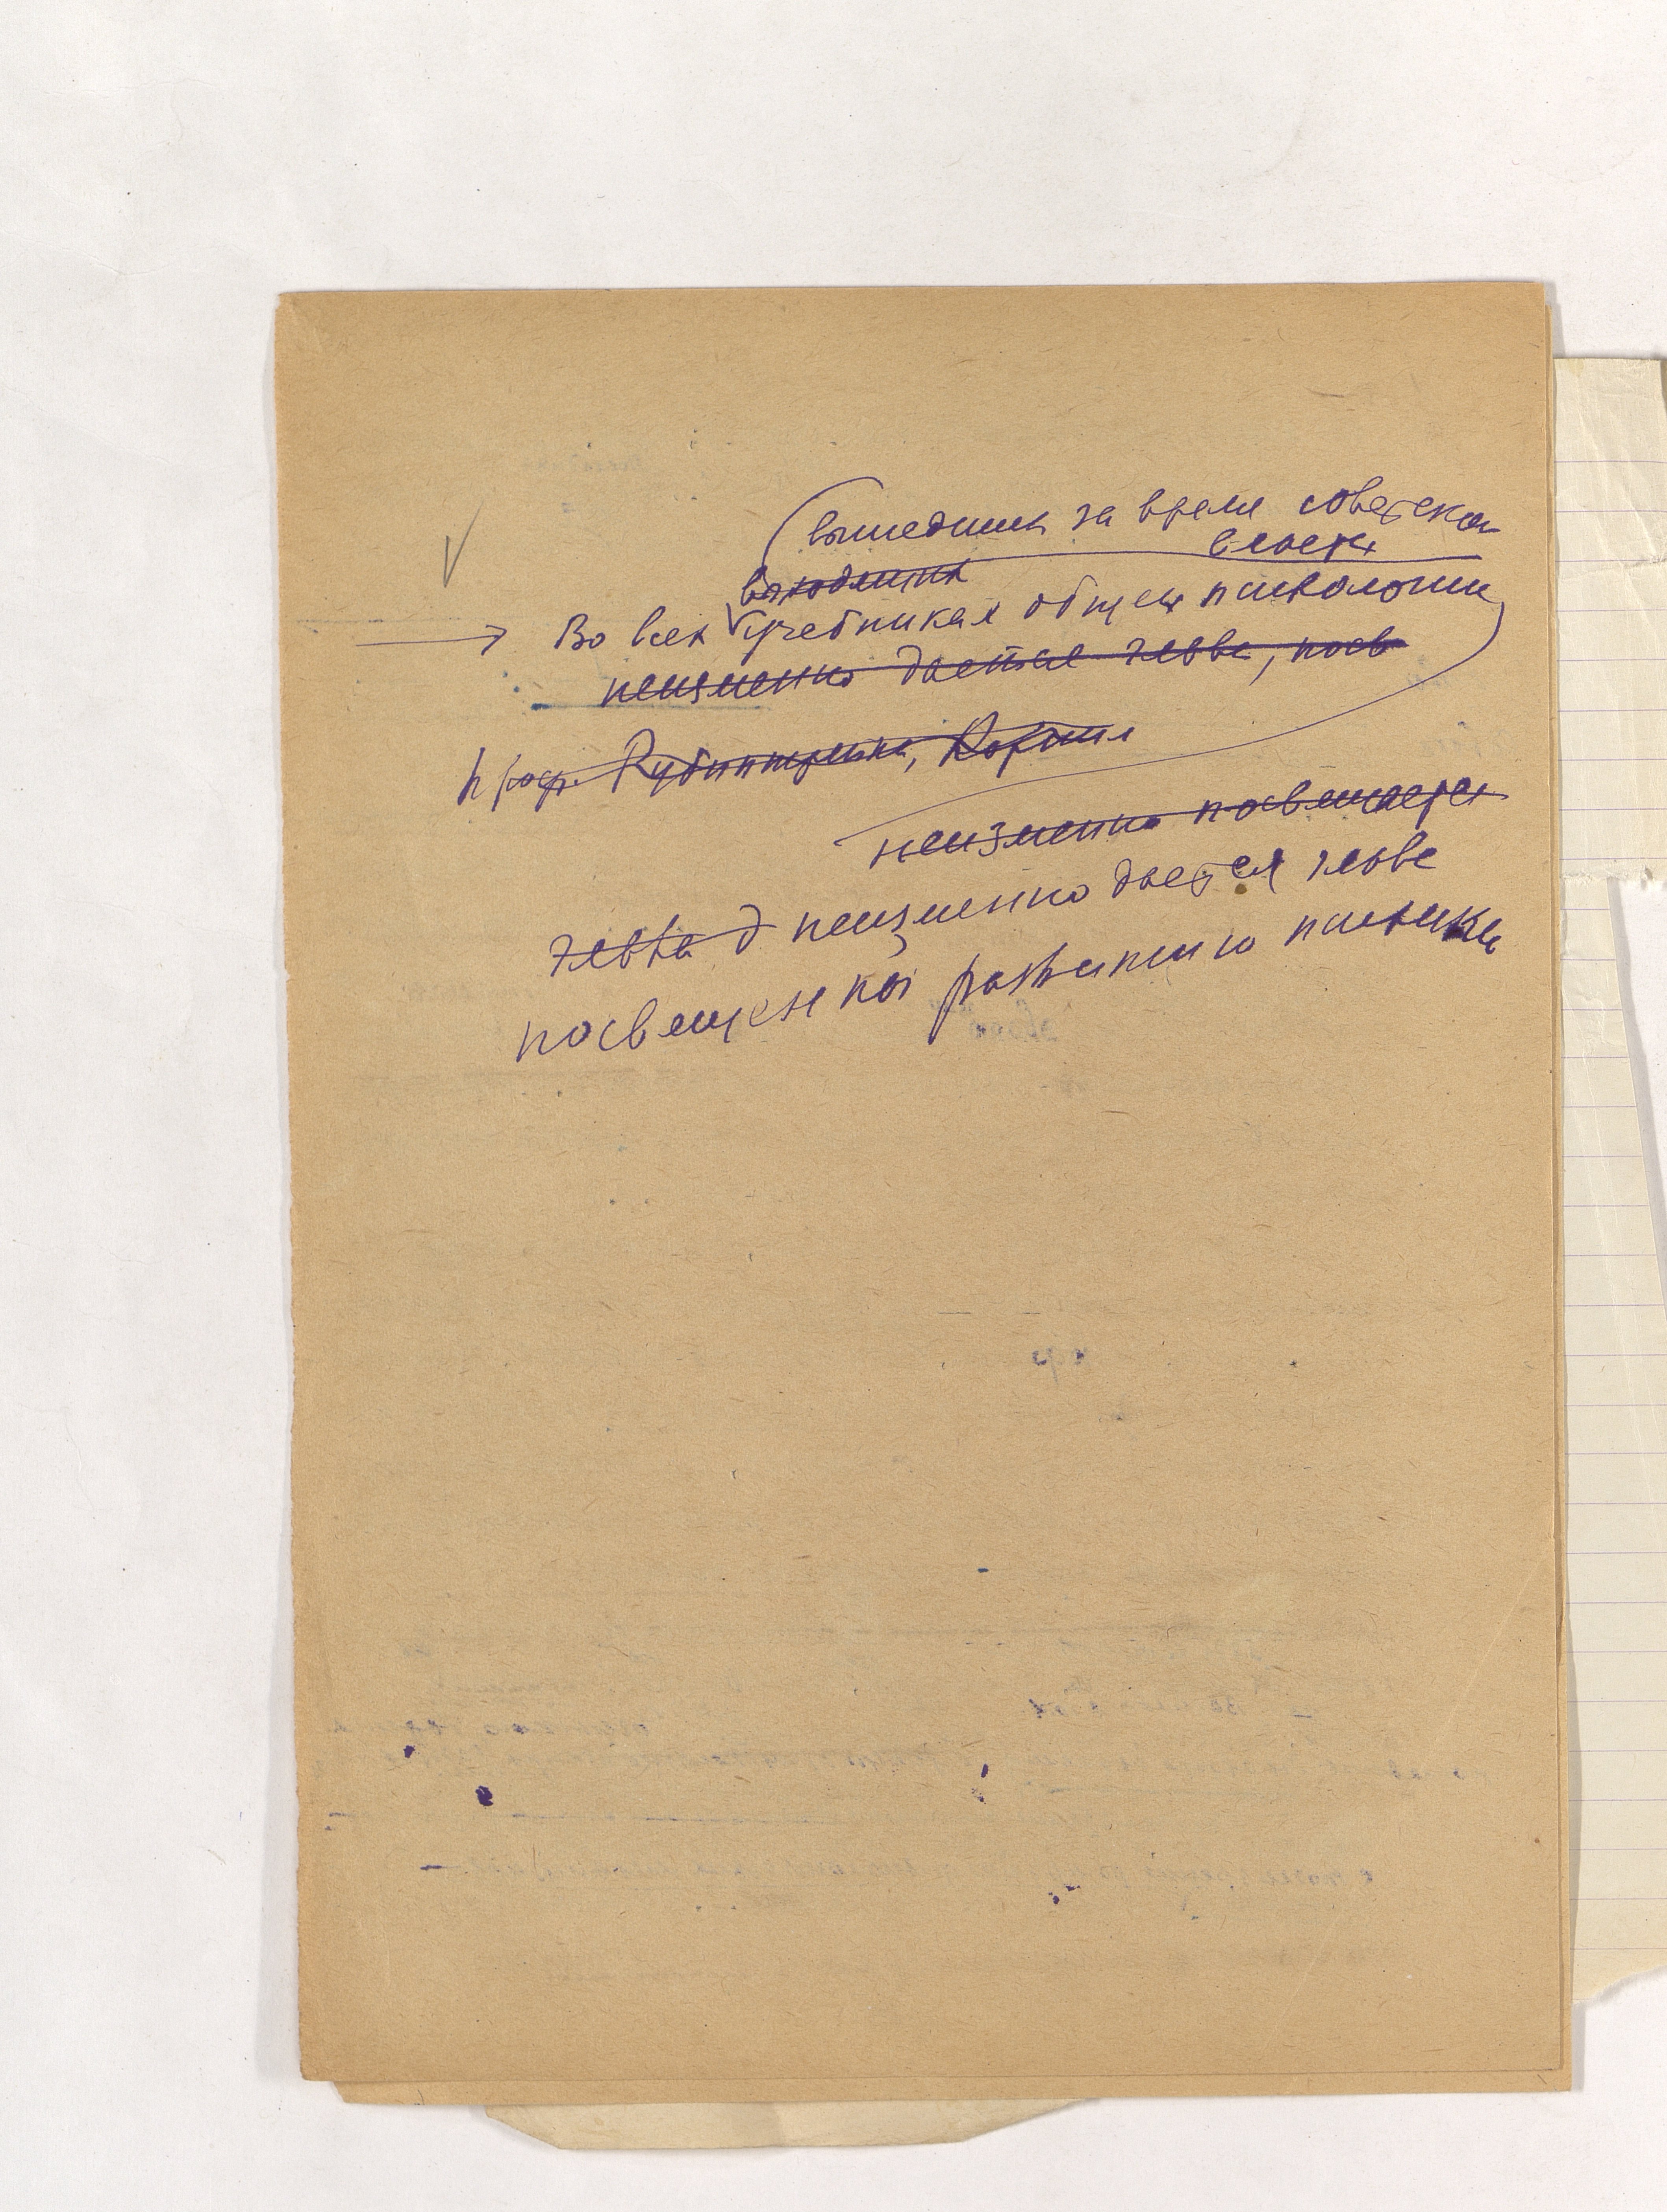 вышедших за время советской
власти
выходящих
Во всех учебниках общей психологии
неизменно дается глава, посв
проф. Рубинштейна, Корнил
неизменно посвящается
глава д неизменно дается глава
посвященная развитию психики